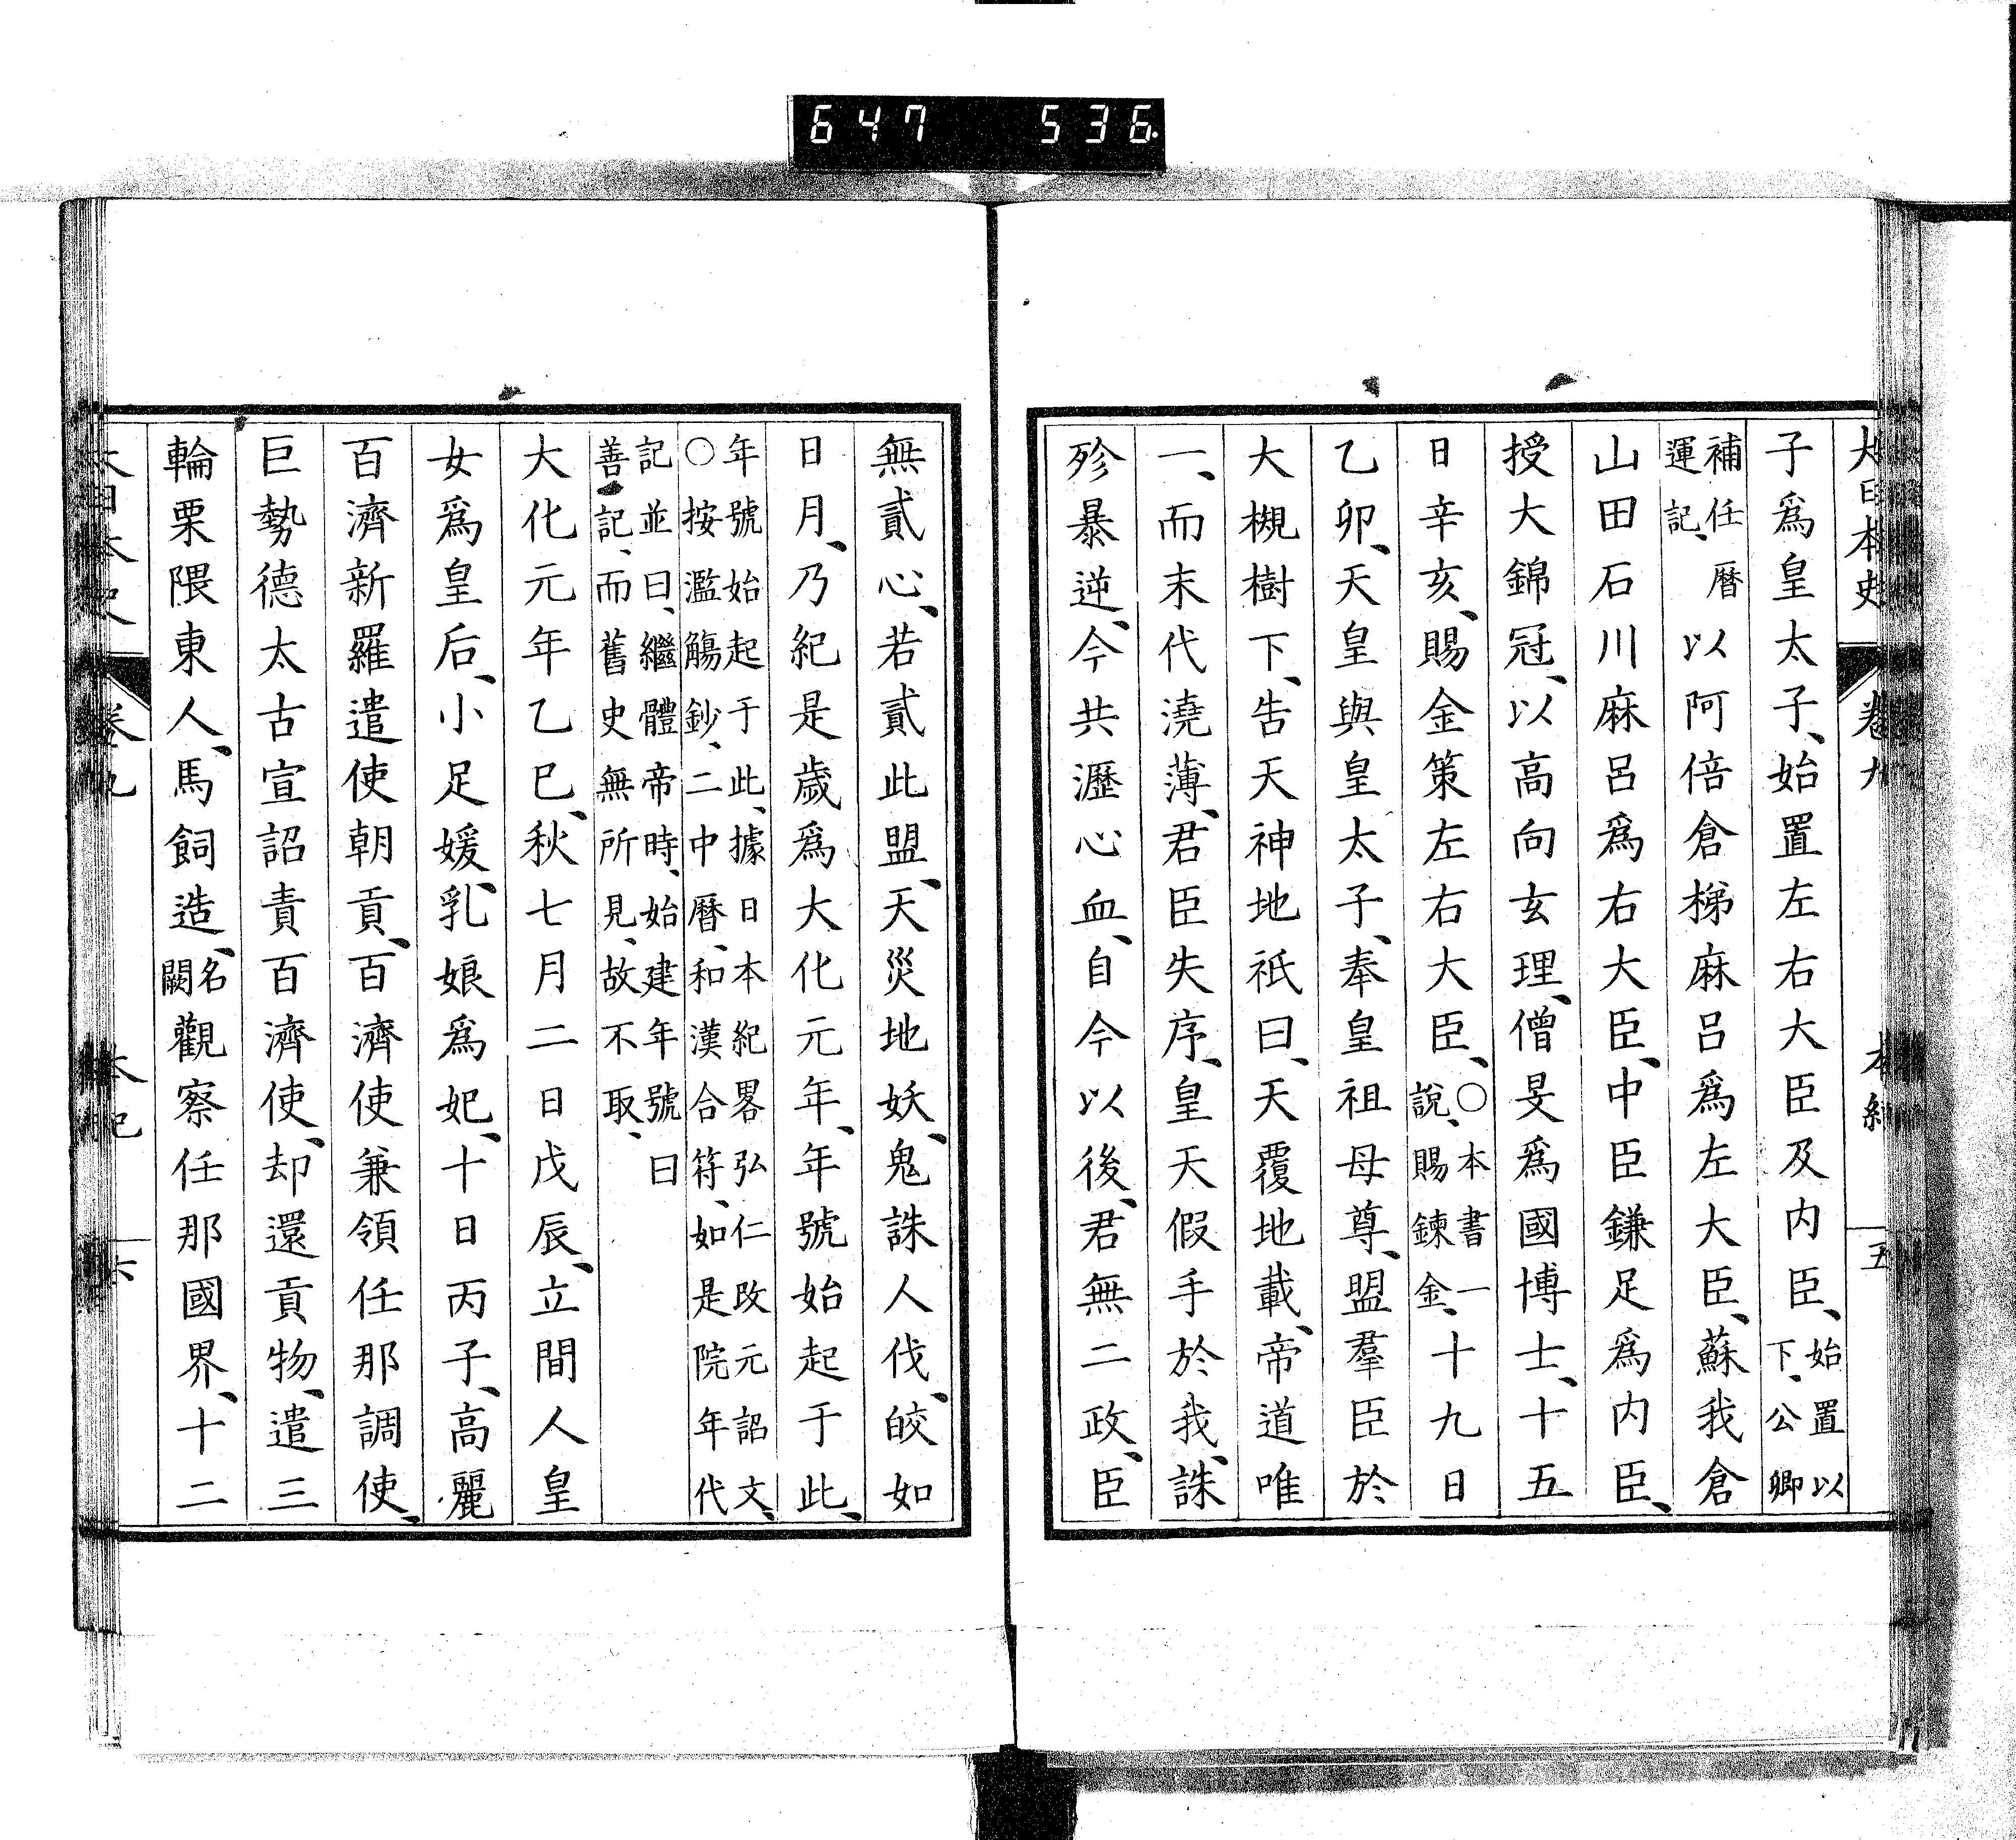 647 536
大日本史 卷九 本紀 五
子爲皇太子、始置左右大臣及内臣、始置以下、公卿
補任暦運記、以阿倍倉梯麻呂爲左大臣、蘇我倉
山田石川麻呂爲右大臣、中臣鎌足爲内臣、
授大錦冠、以高向玄理、僧旻爲國博士、十五
日辛亥、賜金策左右大臣、○本書一說、賜鍊金、十九日
乙卯、天皇與皇太子、奉皇祖母尊、盟羣臣於
大槻樹下、告天神地祇曰、天覆地載、帝道唯
一、而末代澆薄、君臣失序、皇天假手於我、誅
殄暴逆、今共瀝心血、自今以後、君無二政、臣
無貳心、若貳此盟、天災地妖、鬼誅人伐、皎如
日月、乃紀是歲爲大化元年、年號始起于此、
年號始起于此、據日本紀畧弘仁改元詔文、
○按濫觴鈔、二中暦、和漢合符、如是院年代
記並曰、繼體帝時、始建年號曰
善記、而舊史無所見、故不取、
大化元年乙巳、秋七月二日戊辰、立間人皇
女爲皇后、小足媛、乳娘爲妃、十日丙子、高麗
百濟新羅遣使朝貢、百濟使兼領任那調使、
巨勢德太古宣詔責百濟使、却還貢物、遣三
輪栗隈東人、馬飼造、名闕觀察任那國界、十二
大日本史 卷九 本紀 六